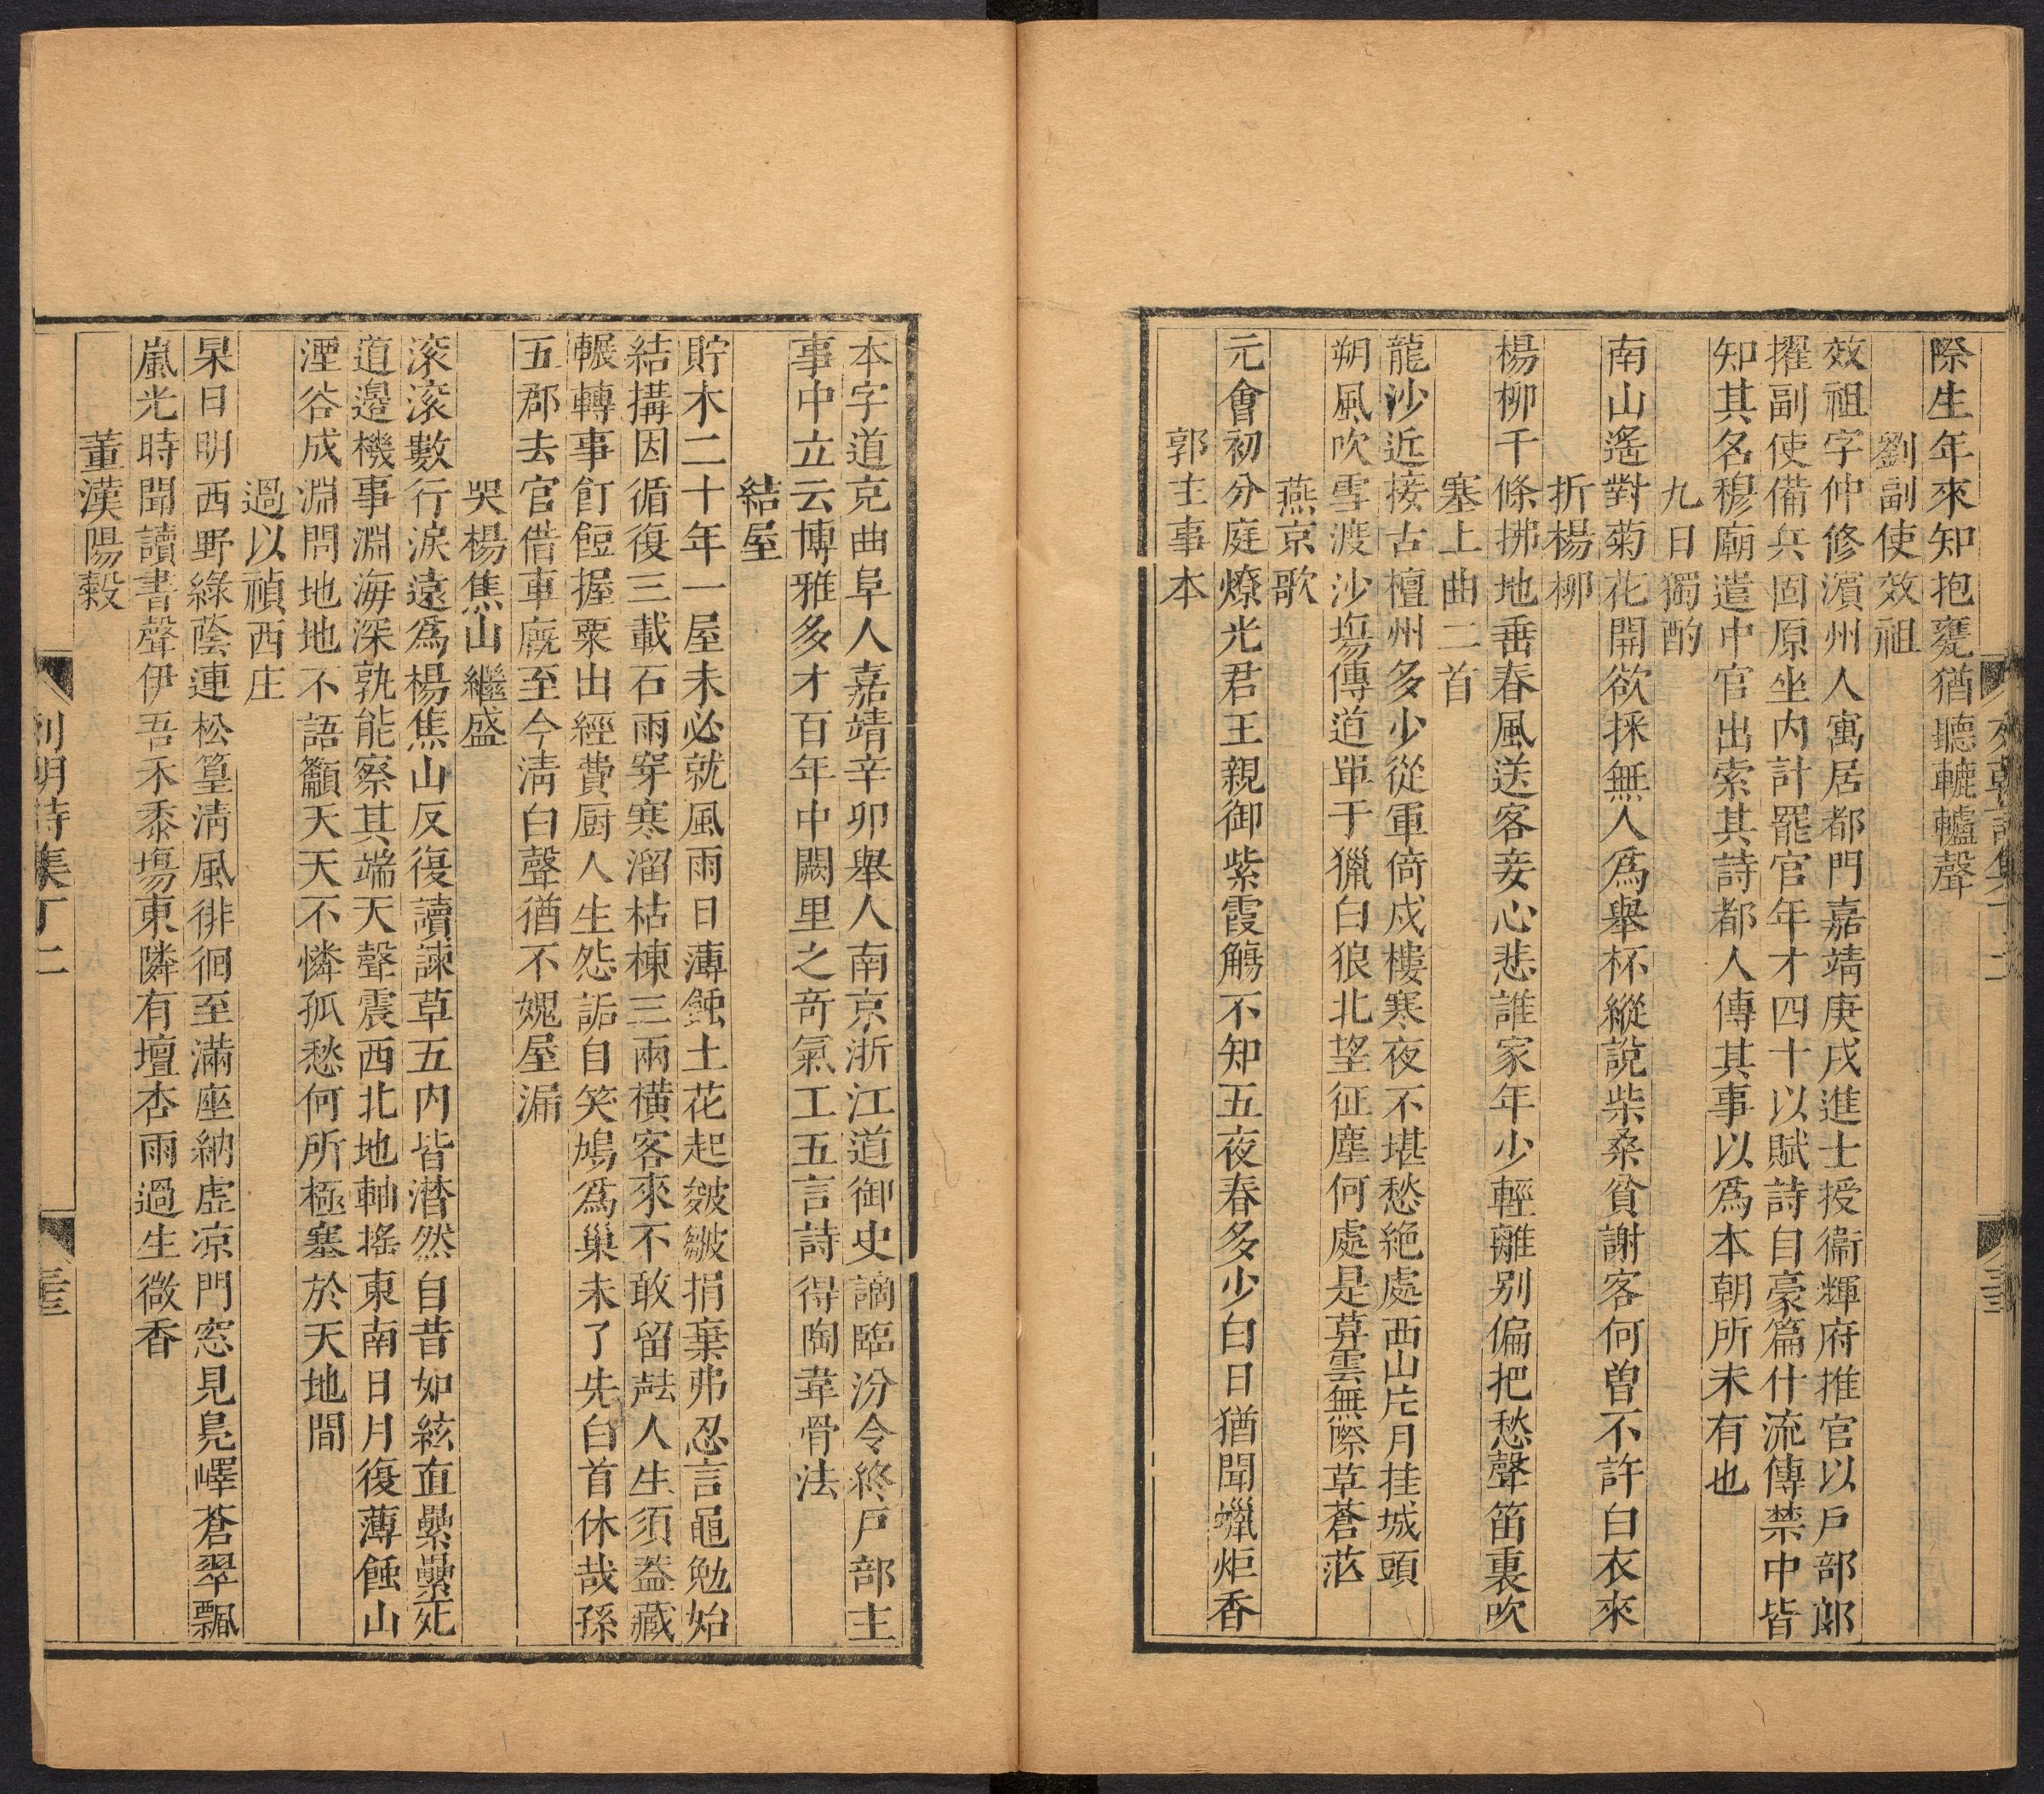 際生年來知抱甕猶聽轆轤聲
劉副使效祖
效祖字仲修濵州人寓居都門嘉靖庚戌進士授衞輝府推官以戸部郞
擢副使備兵固原坐内計罷官年才四十以賦詩自豪篇什流傳禁中皆
知其名穆廟遣中官出索其詩都人傳其事以爲本朝所未有也
九日獨酌
南山遙對菊花開欲採無人爲舉杯縱說柴桑貧謝客何曽不許白衣來
折楊柳
楊柳千條拂地垂春風送客妾心悲誰家年少輕離别偏把愁聲笛裏吹
塞上曲二首
龍沙近接古檀州多少從軍倚戍樓寒夜不堪愁絕處西山片月挂城頭
朔風吹雪渡沙塲傳道單于獵白狼北望征塵何處是莫雲無際草蒼茫
燕京歌
元會初分庭燎光君王親御紫霞觴不知五夜春多少白日猶聞蠟炬香
郭主事本
本字道克曲阜人嘉靖辛卯舉人南京浙江道御史謫臨汾令終戸部主
事中立云博雅多才百年中闕里之奇氣工五言詩得陶韋骨法
結屋
貯木二十年一屋未必就風雨日薄蝕土花起皴皺捐棄弗忍言黽勉始
結搆因循復三載石雨穿寒溜枯棟三兩橫客來不敢留壸人生須蓋藏
輾轉事飣餖握粟出經費厨人生怨詬自笑鳩爲巢未了先白首休哉孫
五郡去官借車廐至今淸白聲猶不媿屋漏
哭楊焦山繼盛
滚滚數行淚遠爲楊焦山反復讀諫草五内皆潸然自昔如絃直纍纍死
道邊機事淵海深孰能察其端天聲震西北地軸搖東南日月復薄蝕山
湮谷成淵問地地不語籲天天不憐孤愁何所極塞於天地間
過以禎西庄
杲日明西野綠蔭連松篁淸風徘徊至滿座納虛凉門窓見鳧嶧蒼翠飄
嵐光時聞讀書聲伊吾禾黍塲東隣有壇杏雨過生微香
董漢陽穀
列朝詩集丁二